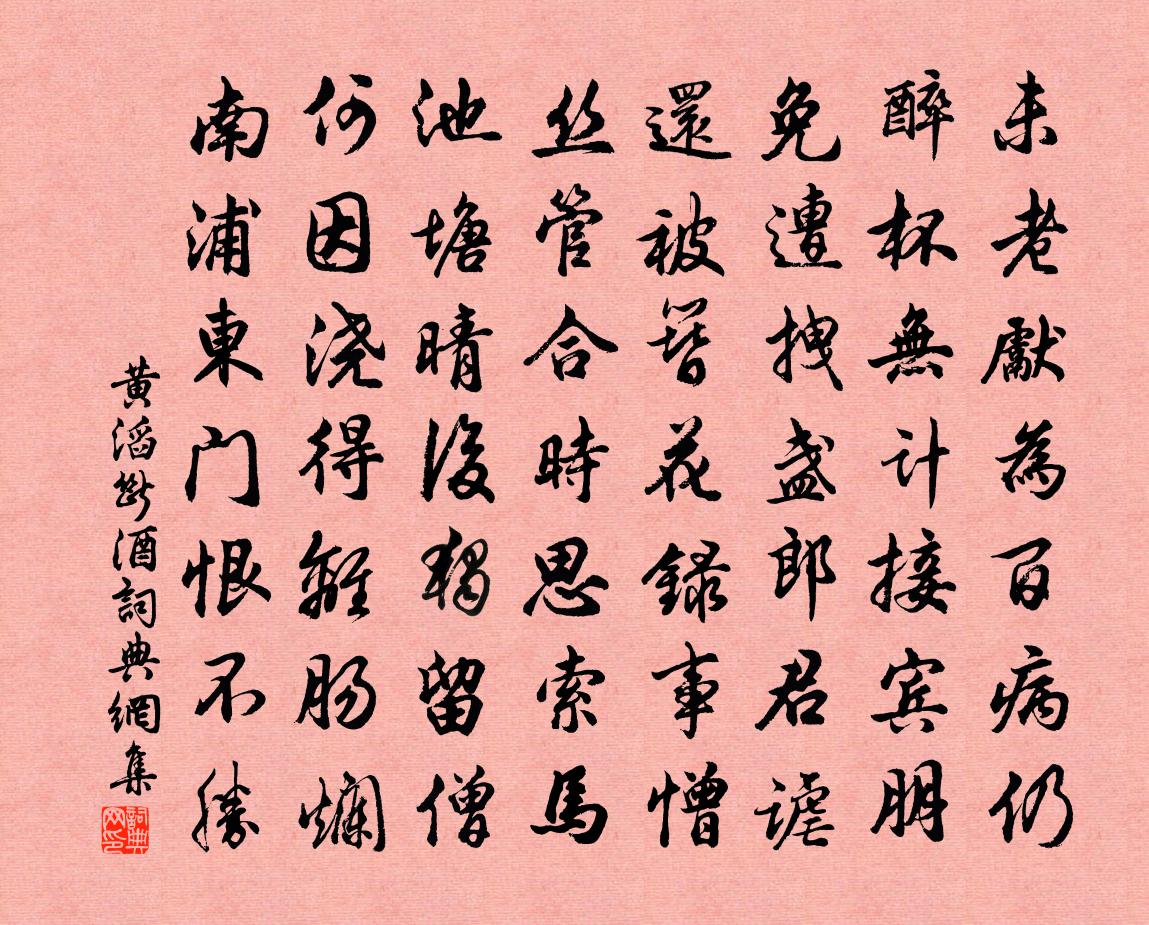 未老厭為百病仍
醉杯無計接宾朋
免遭拽盏郎君谑
還被簪花錄事憎
丝管合時思索馬
池塘晴後独留僧
何因浇得離肠爛
南浦東门恨不勝
黄滔斷酒詞典網集
詞典网印